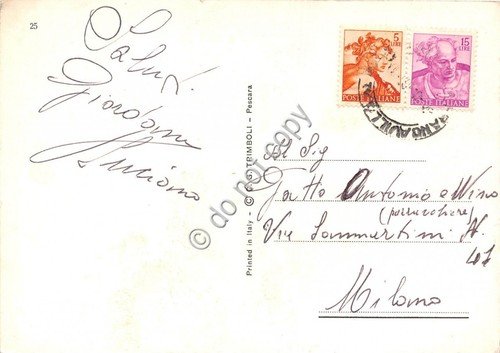 25
Saluti
Giordana
Luciano
Printed in Italy - (C) G.S. TRIMBOLI - Pescara
5
LIRE
POSTE ITALIANE
15
LIRE
POSTE ITALIANE
FRANCAVILLA
© do not copy
Al Sig
Gatto Antonio e Wino
(parrucchiere)
Via Sammartini N.
41
Milano